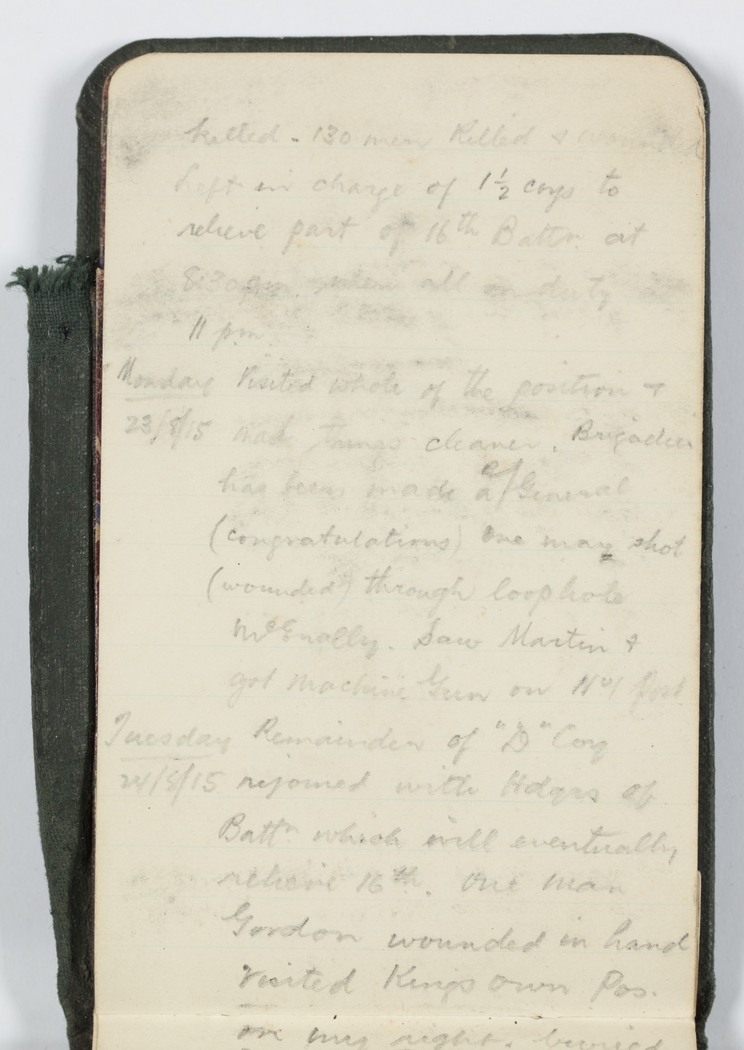 killed. 130 men killed & wounded
Left in charge of 1½ coys to
relieve part of 16th Battn. at
8.30 pm. when all on duty
11 pm.
Monday Visited whole of the position &
23/8/15 had things cleaner. Brigadier
has been made a/ General
(congratulations) One man shot
(wounded) through loophole
McEnally. Saw Martin &
got Machine Gun on No 1 Post
Tuesday Remainder of "D" Coy
24/8/15 rejoined with Hdqrs of
Battn which will eventually
relieve 16th. One man
Gordon wounded in hand
Visited Kings own Pos.
on my right. buried